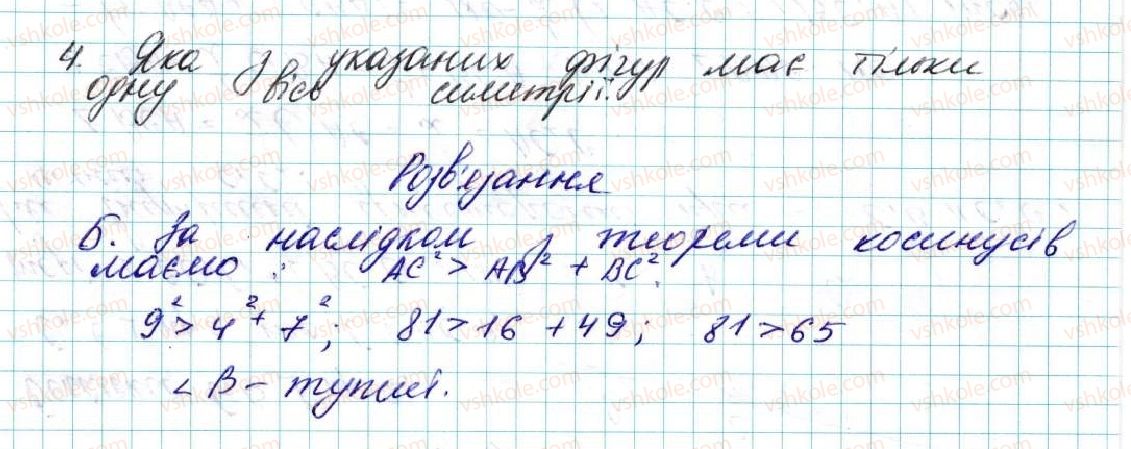 4. Яка з указаних фігур має тільки
одну вісь симетрії.
Розв'язання
Б. За наслідком з теореми косинусів
маємо: AC² > AB² + BC².
9² > 4² + 7²; 81 > 16 + 49; 81 > 65
∠B - тупий.